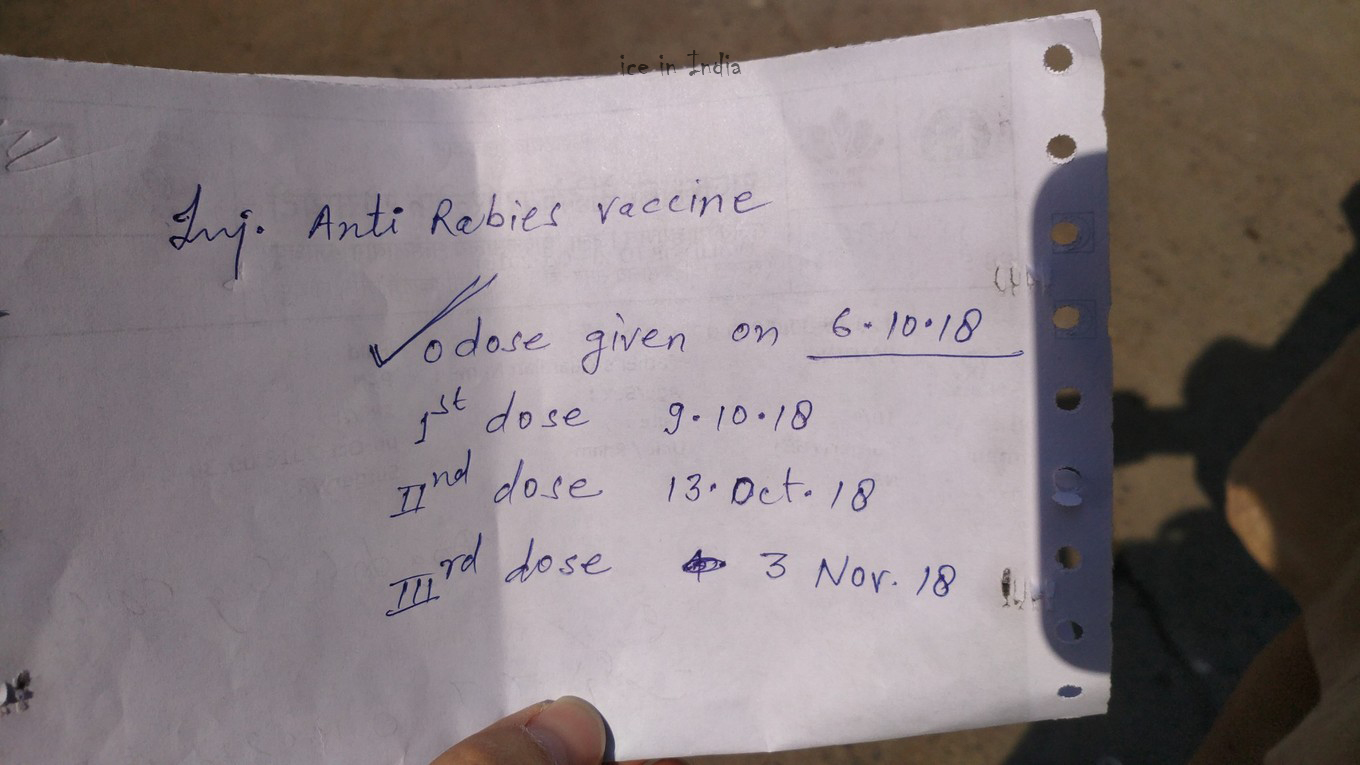 ice in India
Inj. Anti Rabies vaccine
✓ 0 dose given on 6.10.18
1st dose 9.10.18
IInd dose 13. Oct. 18
IIIrd dose 3 Nov. 18